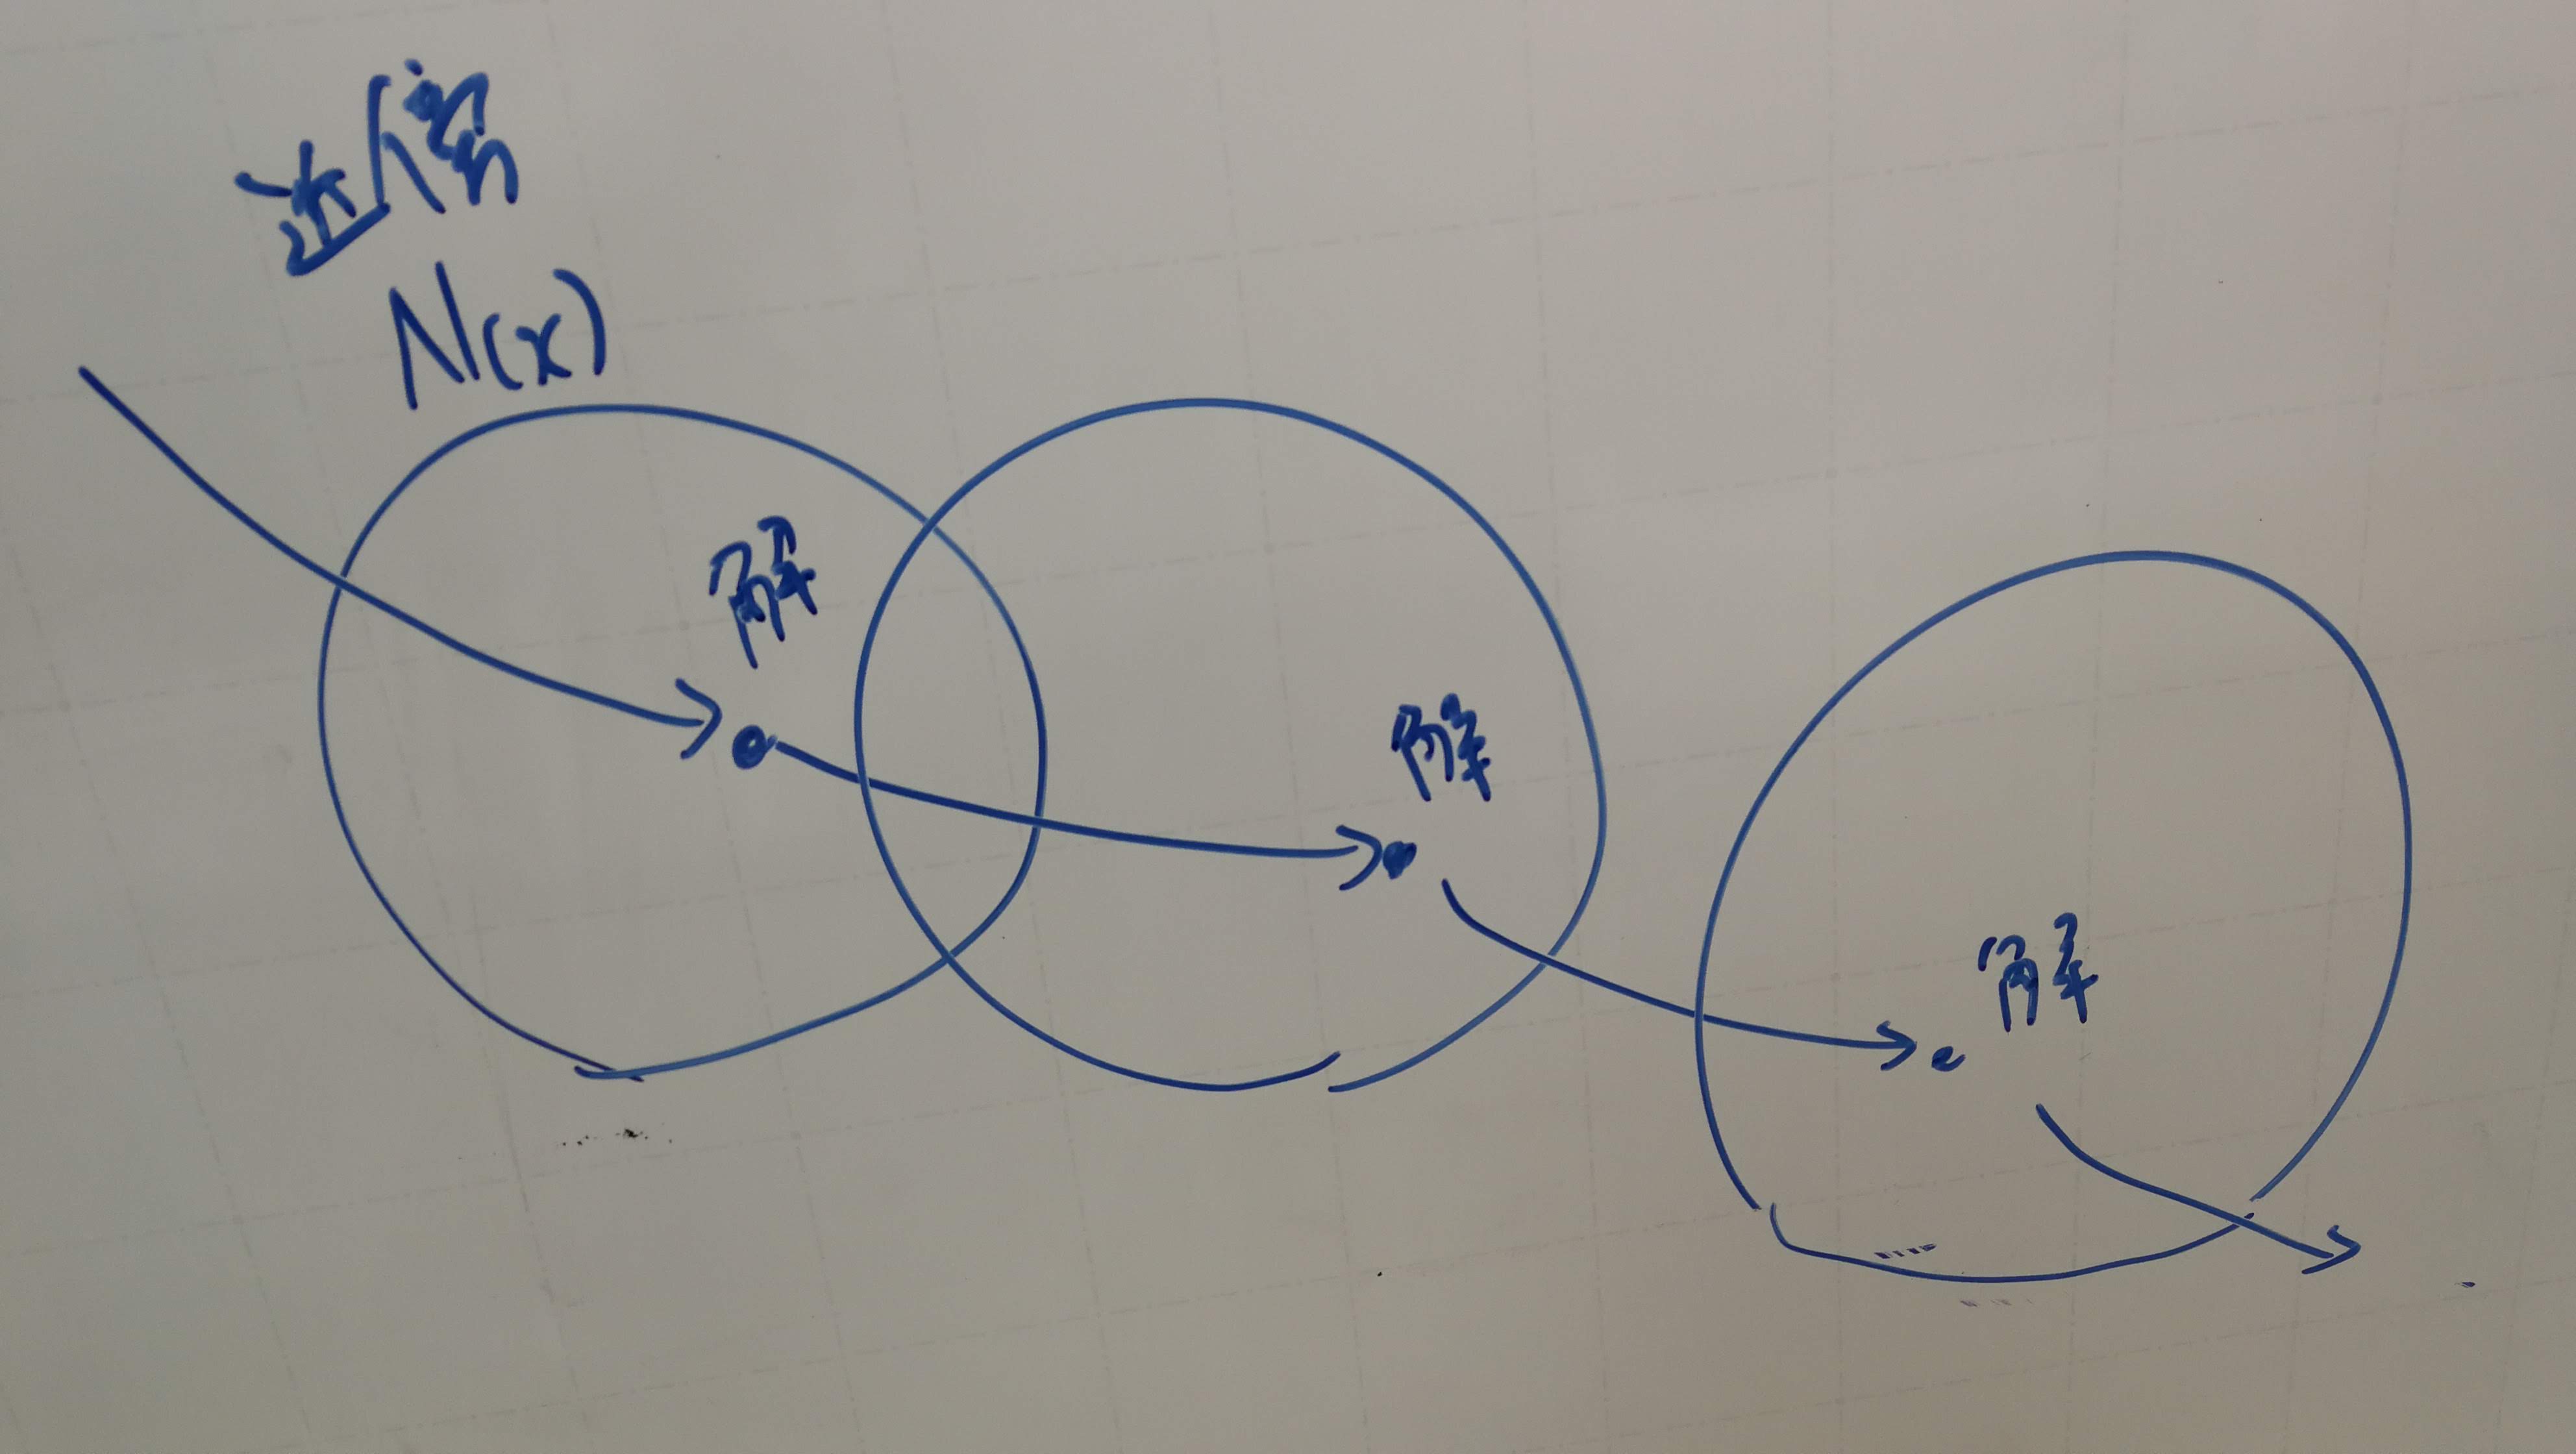 近傍
N(x)
解
解
解